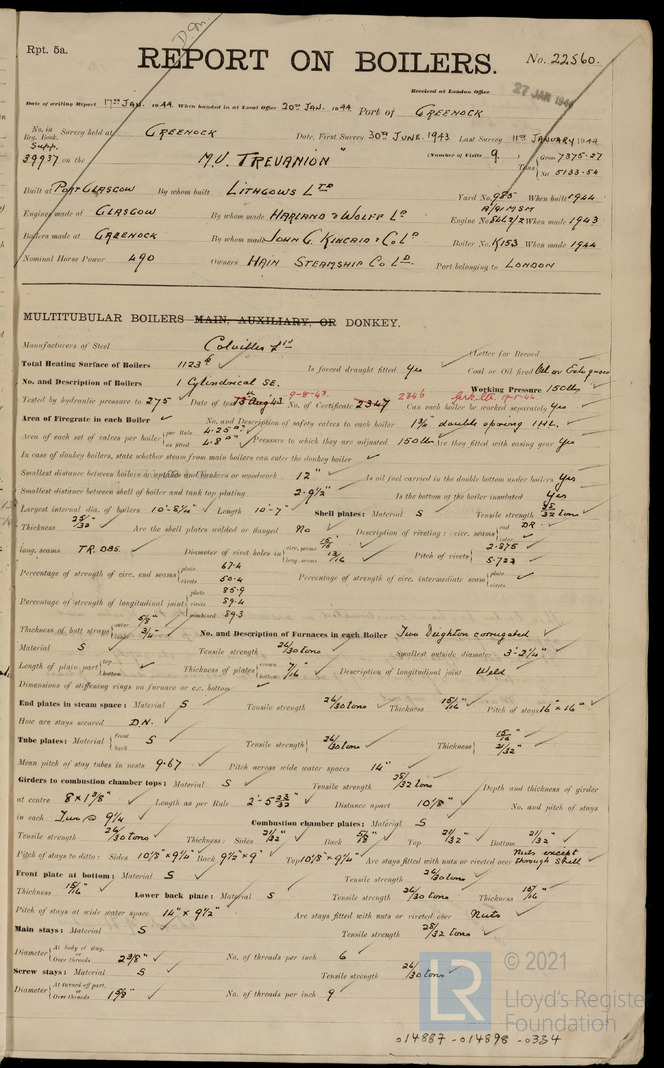 Rpt. 5a.
REPORT ON BOILERS.
No. 22560.
Received at London Office
27 JAN 1944
Date of writing Report 17TH JAN. 1944 When handed in at Local Office 20TH JAN. 1944 Port of GREENOCK
No. in Reg. Book. Survey held at GREENOCK Date, First Survey 30TH JUNE. 1943 Last Survey 11TH JANUARY 1944
Supp. 39937 on the M.V. TREVANION" (Number of Visits 9 ) Tons Gross 7375.27 Net 5133.54
Built at PORT GLASGOW By whom built LITHGOWS LTD Yard No. 985 When built 1944
Engines made at GLASGOW By whom made HARLAND & WOLFF LD Engine No. When made 1943
Boilers made at GREENOCK By whom made JOHN G. KINCAID & Co LD Boiler No. K153 When made 1944
Nominal Horse Power 490 Owners HAIN STEAMSHIP Co LD. Port belonging to LONDON
MULTITUBULAR BOILERS MAIN, AUXILIARY, OR DONKEY.
Manufacturers of Steel Colvilles Ltd (Letter for Record
Total Heating Surface of Boilers 1123 Is forced draught fitted Yes Coal or Oil fired Oil or Exh. gases
No. and Description of Boilers 1 Cylindrical SE. Working Pressure 150 lbs
Tested by hydraulic pressure to 275 Date of test 13 Aug 43 9-8-43. No. of Certificate 2347 2346 Can each boiler be worked separately Yes
Area of Firegrate in each Boiler No. and Description of safety valves to each boiler 1¾" double spring I.H.L.
Area of each set of valves per boiler per Rule 4.25 as fitted 4.8 Pressure to which they are adjusted 150 lbs Are they fitted with easing gear Yes
In case of donkey boilers, state whether steam from main boilers can enter the donkey boiler
Smallest distance between boilers or uptakes and bunkers or woodwork 12" Is oil fuel carried in the double bottom under boilers Yes
Smallest distance between shell of boiler and tank top plating 2-9½" Is the bottom of the boiler insulated Yes
Largest internal dia. of boilers 10'-8¼" Length 10'-7" Shell plates: Material S Tensile strength 28/32 tons
Thickness 25/32" Are the shell plates welded or flanged No Description of riveting: circ. seams end DR. inter.
long. seams TR. DBS. Diameter of rivet holes in circ. seams 15/16 long. seams 13/16 Pitch of rivets 2.875 5.722
Percentage of strength of circ. end seams plate 67.4 rivets 50.4 Percentage of strength of circ. intermediate seam plate rivets
Percentage of strength of longitudinal joint plate 85.9 rivets 89.4 combined 89.3
Thickness of butt straps outer 5/8" inner 3/4" No. and Description of Furnaces in each Boiler Two Deighton corrugated
Material S Tensile strength 26/30 tons Smallest outside diameter 3'-2¼"
Length of plain part top bottom Thickness of plates crown bottom 7/16" Description of longitudinal joint Weld
Dimensions of stiffening rings on furnace or c.c. bottom
End plates in steam space: Material S Tensile strength 26/30 tons Thickness 15/16" Pitch of stays 16" × 16"
How are stays secured D.N.
Tube plates: Material front back S Tensile strength 26/30 tons Thickness 15/16" 21/32"
Mean pitch of stay tubes in nests 9.67 Pitch across wide water spaces 14"
Girders to combustion chamber tops: Material S Tensile strength 28/32 tons Depth and thickness of girder
at centre 8 × 1⅜" Length as per Rule 2'-5 23/32" Distance apart 10⅛" No. and pitch of stays
in each Two @ 9¼ Combustion chamber plates: Material S
Tensile strength 26/30 tons Thickness: Sides 21/32" Back 5/8" Top 21/32" Bottom 21/32"
Pitch of stays to ditto: Sides 10⅛" × 9¼" Back 9½" × 9" Top 10⅛" × 9¼" Are stays fitted with nuts or riveted over Nuts except through shell
Front plate at bottom: Material S Tensile strength 26/30 tons
Thickness 15/16" Lower back plate: Material S Tensile strength 26/30 tons Thickness 15/16"
Pitch of stays at wide water space 14" × 9½" Are stays fitted with nuts or riveted over Nuts
Main stays: Material S Tensile strength 28/32 tons
Diameter At body of stay, or Over threads 2⅜" No. of threads per inch 6
Screw stays: Material S Tensile strength 26/30 tons
Diameter At turned off part, or Over threads 1⅝" No. of threads per inch 9
© 2021
LR Lloyd's Register Foundation
014887-014898-0334